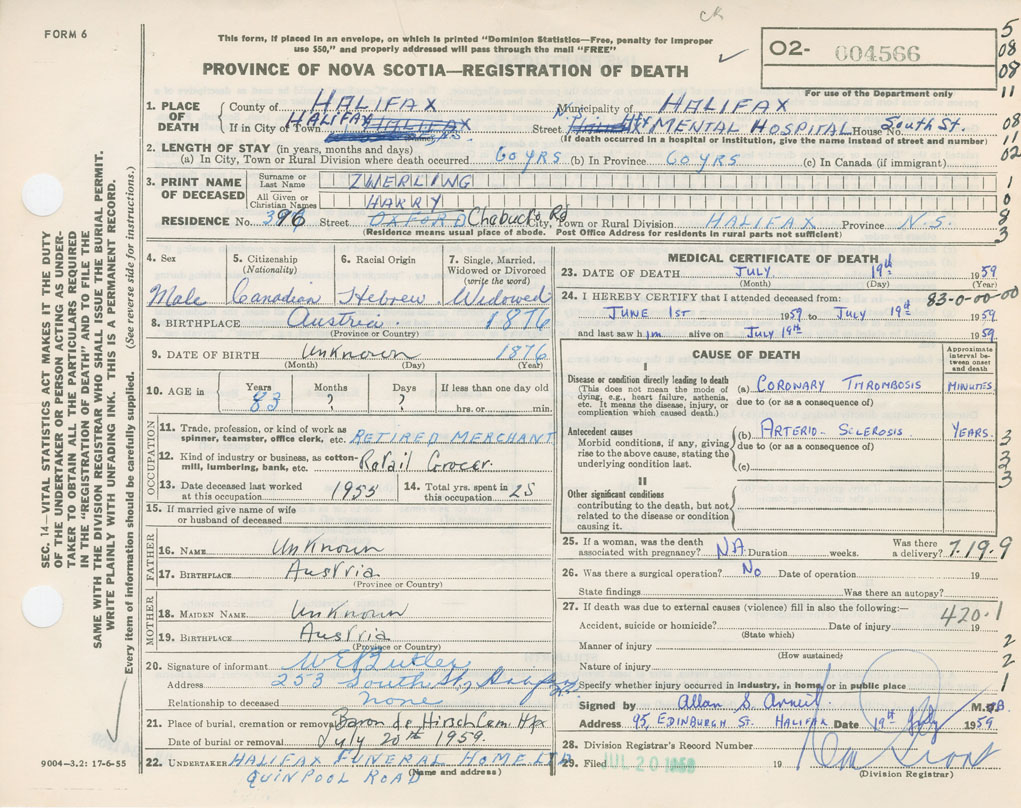 CR
FORM 6
This form, if placed in an envelope, on which is printed "Dominion Statistics—Free, penalty for improper
use $50," and properly addressed will pass through the mail "FREE"
PROVINCE OF NOVA SCOTIA—REGISTRATION OF DEATH
O2- 004566
For use of the Department only
5
08
08
11
08
11
02
1
0
8
3
1. PLACE OF DEATH
County of HALIFAX Municipality of HALIFAX
If in City of Town HALIFAX Street MENTAL HOSPITAL House No. South St.
(If death occurred in a hospital or institution, give the name instead of street and number)
2. LENGTH OF STAY (in years, months and days)
(a) In City, Town or Rural Division where death occurred 60 YRS (b) In Province 60 YRS (c) In Canada (if immigrant)
3. PRINT NAME OF DECEASED
Surname or Last Name ZWERLING
All Given or Christian Names HARRY
RESIDENCE No. 396 Street OXFORD Chabucto Rd City, Town or Rural Division HALIFAX Province N.S.
(Residence means usual place of abode. Post Office Address for residents in rural parts not sufficient)
4. Sex Male
5. Citizenship (Nationality) Canadian
6. Racial Origin Hebrew
7. Single, Married, Widowed or Divorced (write the word) Widowed
8. BIRTHPLACE Austria. 1876
(Province or Country)
9. DATE OF BIRTH Unknown 1876
(Month) (Day) (Year)
10. AGE in Years 83 Months ? Days ? If less than one day old
hrs. or min.
OCCUPATION
11. Trade, profession, or kind of work as spinner, teamster, office clerk, etc. RETIRED MERCHANT
12. Kind of industry or business, as cotton-mill, lumbering, bank, etc. Retail Grocer.
13. Date deceased last worked at this occupation 1955
14. Total yrs. spent in this occupation 25
15. If married give name of wife or husband of deceased
FATHER
16. NAME Unknown
17. BIRTHPLACE Austria
(Province or Country)
MOTHER
18. MAIDEN NAME Unknown
19. BIRTHPLACE Austria
(Province or Country)
20. Signature of informant W E Butler
Address 253 South St,
Relationship to deceased none
21. Place of burial, cremation or removal Baron de Hirsch Cem. Hfx
Date of burial or removal July 20th 1959.
22. UNDERTAKER HALIFAX FUNERAL HOME LTD
QUINPOOL ROAD
(Name and address)
9004-3.2: 17-6-55
MEDICAL CERTIFICATE OF DEATH
23. DATE OF DEATH JULY 19th 1959
(Month) (Day) (Year)
83-0-00-00
24. I HEREBY CERTIFY that I attended deceased from:
JUNE 1st 1959 to JULY 19th 1959
and last saw him alive on JULY 19th 1959.
CAUSE OF DEATH
Approximate interval between onset and death
I
Disease or condition directly leading to death
(This does not mean the mode of dying, e.g., heart failure, asthenia, etc. It means the disease, injury, or complication which caused death.)
(a) CORONARY THROMBOSIS MINUTES
due to (or as a consequence of)
Antecedent causes
Morbid conditions, if any, giving rise to the above cause, stating the underlying condition last.
(b) ARTERIO-SCLEROSIS. YEARS.
due to (or as a consequence of)
(c)
3
3
3
3
II
Other significant conditions
contributing to the death, but not related to the disease or condition causing it.
25. If a woman, was the death associated with pregnancy? NA Duration weeks. Was there a delivery? 7.19.9
26. Was there a surgical operation? No Date of operation 19
State findings Was there an autopsy?
27. If death was due to external causes (violence) fill in also the following:—
420.1
Accident, suicide or homicide? Date of injury 19
(State which)
Manner of injury 2
(How sustained)
Nature of injury 2
Specify whether injury occurred in industry, in home, or in public place 1
Signed by M.D.
Address 95, EDINBURGH ST. HALIFAX Date 19th July 1959
28. Division Registrar's Record Number
29. Filed JUL 20 1959 19
(Division Registrar)
SEC. 14—VITAL STATISTICS ACT MAKES IT THE DUTY
OF THE UNDERTAKER OR PERSON ACTING AS UNDER-
TAKER TO OBTAIN ALL THE PARTICULARS REQUIRED
IN THE "REGISTRATION OF DEATH" AND TO FILE THE
SAME WITH THE DIVISION REGISTRAR WHO SHALL ISSUE THE BURIAL PERMIT.
WRITE PLAINLY WITH UNFADING INK. THIS IS A PERMANENT RECORD.
Every item of information should be carefully supplied. (See reverse side for instructions.)